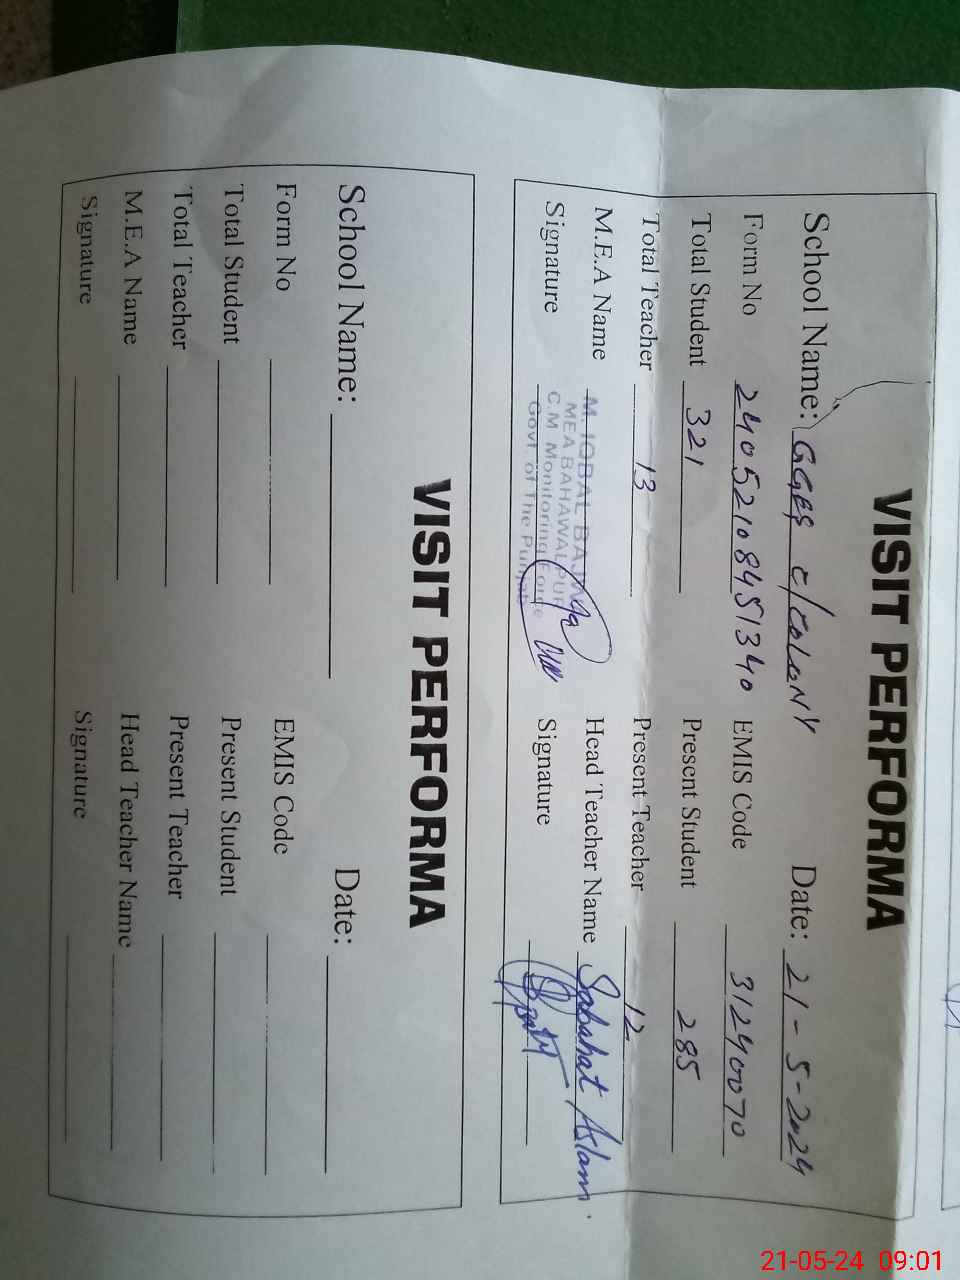 VISIT PERFORMA
School Name: GGES C/COLONY Date: 21-5-2024
Form No 24052108451340 EMIS Code 31240070
Total Student 321 Present Student 285
Total Teacher 13 Present Teacher 12
M.E.A Name M. IQBAL BAJWA Head Teacher Name Sabahat Aslam.
MEA BAHAWALPUR
C.M Monitoring Force
Govt. of The Punjab
Signature Signature
VISIT PERFORMA
School Name: Date:
Form No EMIS Code
Total Student Present Student
Total Teacher Present Teacher
M.E.A Name Head Teacher Name
Signature Signature
21-05-24 09:01